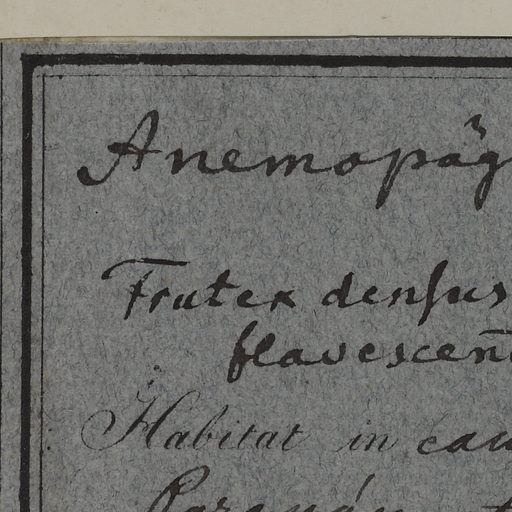 Anemopäg
Frutex denſus
flavescen̄
Habitat in cam
Paranán